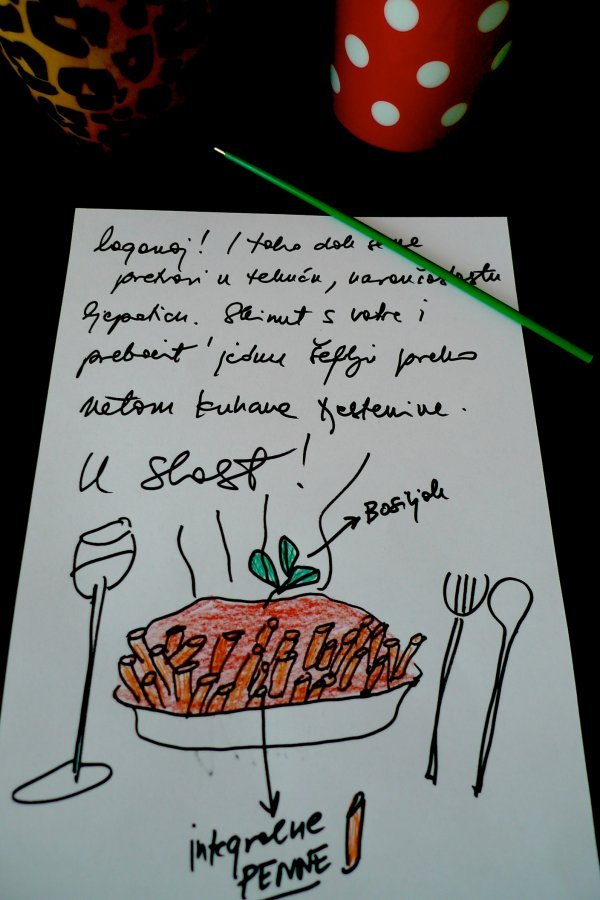 laganoj! I tako dok se ne
pretvori u tekuću, narančastu
ljepoticu. Skinut s vatre i
prebacit jednu šeflju preko
netom kuhane tjestenine.
U slast!
Bosiljak
integralne
PENNE